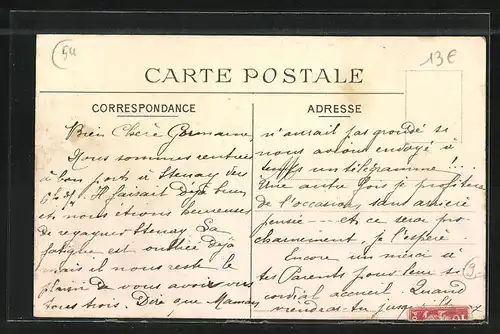 54
13€
CARTE POSTALE
CORRESPONDANCE
ADRESSE
Bien Chère Germaine,
Nous sommes rentrées
à bon port à Stenay vers
6h 3/4. Il faisait déjà bien
et nous étions heureuses
de regagner Stenay. La
fatigue est oubliée déjà
mais il nous reste le
plaisir de vous avoir vus
tous trois. Dire que Maman
n'aurait pas grondé si
nous avions envoyé à
temps un télégramme!...
Une autre fois je profiterai
de l'occasion sans arrière
pensée — et ce sera pro-
chainement, je l'espère.
Encore un merci à
tes Parents pour leur si
cordial accueil. Quand
viendras-tu jusqu'ici